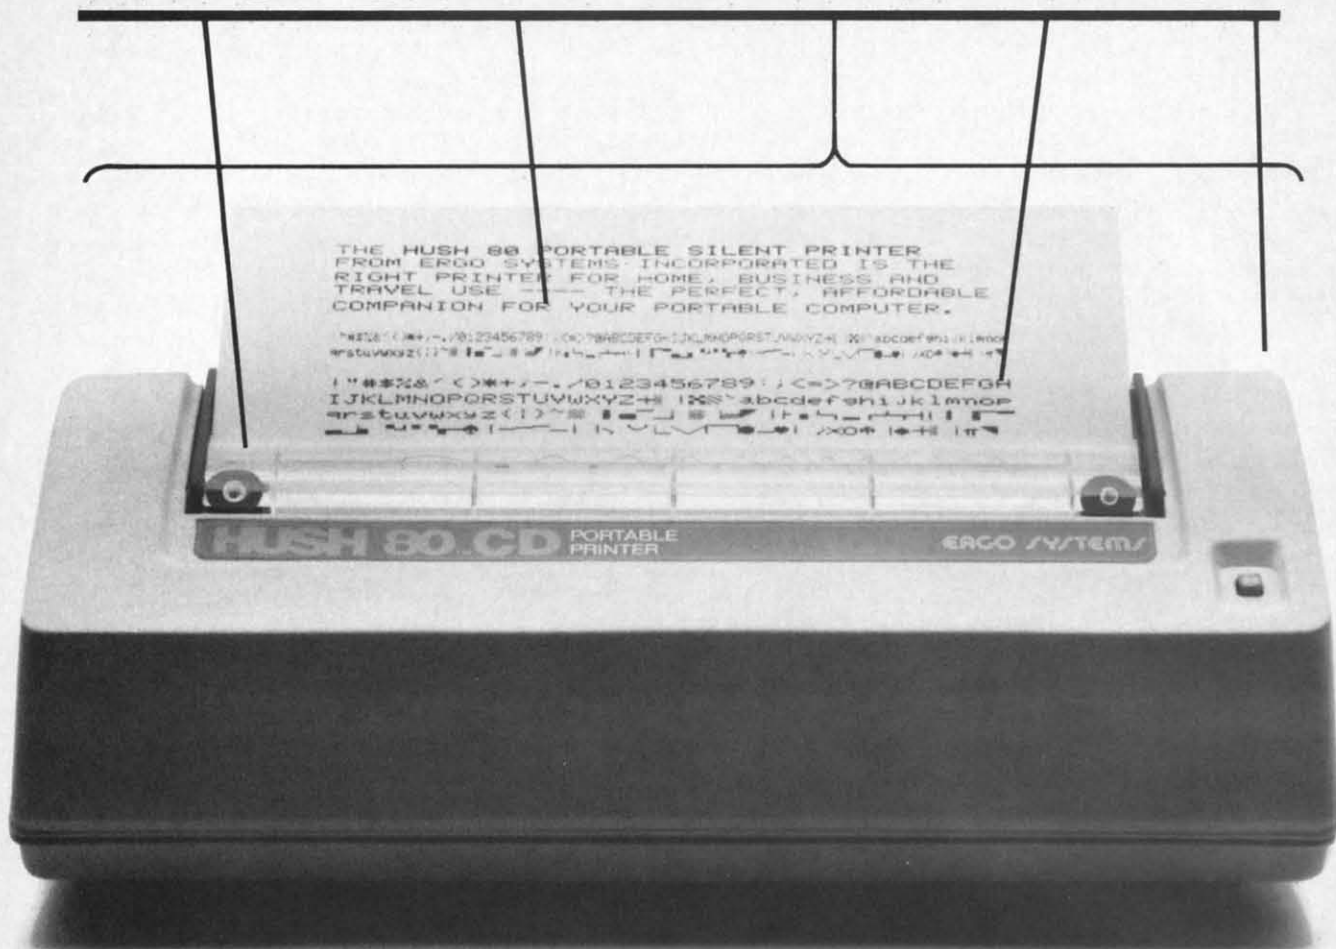 THE HUSH 80 PORTABLE SILENT PRINTER
FROM ERGO SYSTEMS INCORPORATED IS THE
RIGHT PRINTER FOR HOME, BUSINESS AND
TRAVEL USE ---- THE PERFECT, AFFORDABLE
COMPANION FOR YOUR PORTABLE COMPUTER.
/0123456789:;<=>?@ABCDEFGHIJKLMNOPQRSTUVWXYZ
abcdefghijklmnop
qrstuvwxyz
!"#$%&'()*+,-./0123456789:;<=>?@ABCDEFGH
IJKLMNOPQRSTUVWXYZ
abcdefghijklmnop
qrstuvwxyz
HUSH 80 CD PORTABLE PRINTER
ERGO SYSTEMS